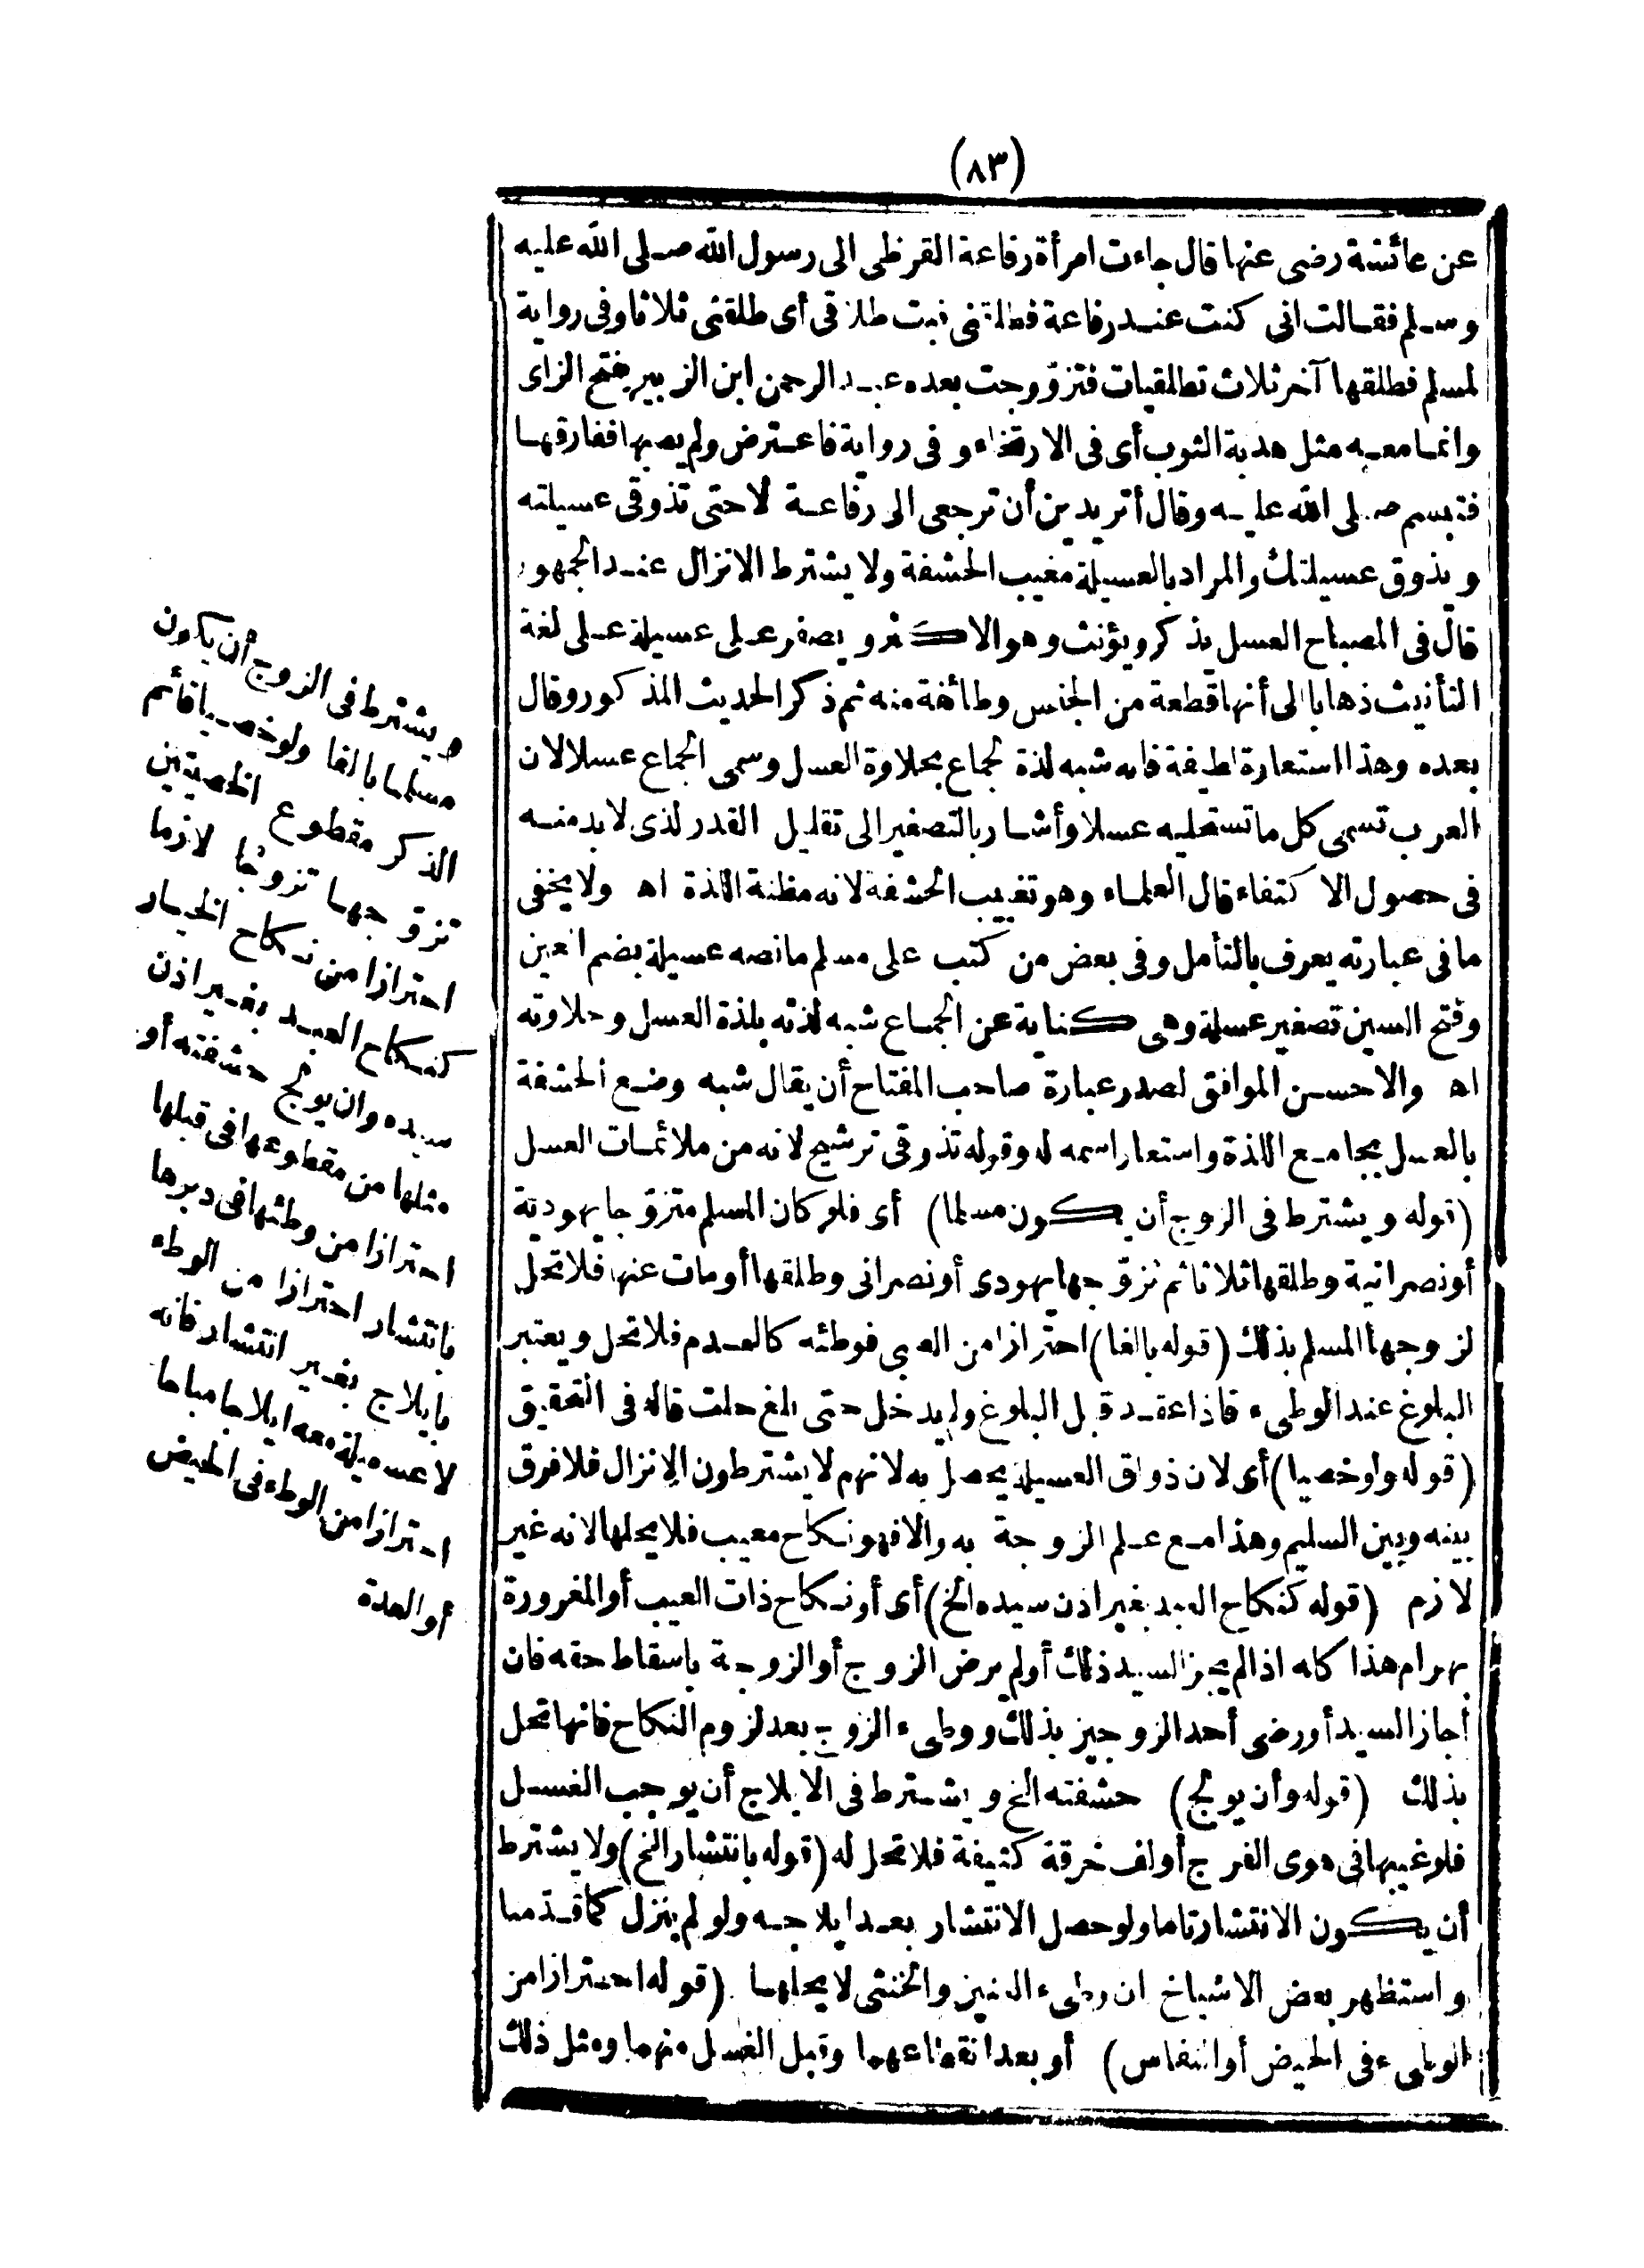 (٨٣)
عن عائشة رضى عنها قال جاءت امرأة رفاعة القرظى الى رسول الله صلى الله عليه
وسلم فقالت انى كنت عند رفاعة فطلقنى فبت طلاقى أى طلقنى ثلاثا وفى رواية
لمسلم فطلقها آخر ثلاث تطلقيات فتزوّوجت بعده عبد الرحمن ابن الزبير بفتح الزاى
وانما معه مثل هدبة الثوب أى فى الارتخاء وفى رواية فاعترض ولم يصبها ففارقها
فتبسم صلى الله عليه وقال أتريدين أن ترجعى الى رفاعة لا حتى تذوقى عسيلته
ويذوق عسيلتك والمراد بالعسيلة مغيب الحشفة ولا يشترط الانزال عند الجمهور
قال فى المصباح العسل يذكر ويؤنث وهو الاكثر ويصغر على عسيلة على لغة
التأنيث ذهابا الى أنها قطعة من الجنس وطائفة منه ثم ذكر الحديث المذكور وقال
بعده وهذا استعارة لطيفة فانه شبه لذة لجماع بحلاوة العسل وسمى الجماع عسلا لان
العرب تسمى كل ما تستحليه عسلا وأشار بالتصغير الى تقليل القدر لذى لابد منه
فى حصول الاكتفاء قال العلماء وهو تغييب الحشفة لانه مظنة اللذة اه ولا يخفى
ما فى عبارته يعرف بالتأمل وفى بعض من كتب على مسلم ما نصه عسيلة بضم العين
وفتح السين تصغير عسلة وهى كناية عن الجماع شبه لذته بلذة العسل وحلاوته
اه والاحسن الموافق لصدر عبارة صاحب المفتاح أن يقال شبه وضع الحشفة
بالعسل بجامع اللذة واستعار اسمه له وقوله تذوقى ترشيح لانه من ملائمات العسل
(قوله ويشترط فى الزوج أن يكون مسلما) أى فلو كان المسلم متزوّجا يهودية
أو نصرانية وطلقها ثلاثا ثم تزوّجها يهودى أو نصرانى وطلقها أو مات عنها فلا تحل
لزوجها المسلم بذلك (قوله بالغا) احترازا من الصبى فوطئه كالعدم فلا تحل ويعتبر
البلوغ عند الوطىء فاذا عقد قبل البلوغ ولم يدخل حتى بلغ حلت قاله فى التحقيق
(قوله ولو خصيا) أى لان ذواق العسيلة يحصل به لانهم لا يشترطون الانزال فلا فرق
بينه وبين السليم وهذا مع علم الزوجة به والا فهو نكاح معيب فلا يحلها لانه غير
لازم (قوله كنكاح العبد بغير اذن سيده الخ) أى أو نكاح ذات العيب أو المغرورة
بهرام هذا كله اذا لم يجز السيد ذلك أو لم يرض الزوج أو الزوجة باسقاط حقه فان
أجاز السيد أو رضى أحد الزوجين بذلك ووطىء الزوج بعد لزوم النكاح فانها تحل
بذلك (قوله وأن يولج) حشفته الخ ويشترط فى الايلاج أن يوجب الغسل
فلو غيبها فى هوى الفرج أو لف خرقة كثيفة فلا تحل له (قوله بانتشار الخ) ولا يشترط
أن يكون الانتشار تاما ولو حصل الانتشار بعد ايلاجه ولو لم ينزل كما قدّمنا
واستظهر بعض الاشياخ ان وطىء العنين والخنثى لا يحلها (قوله احترازا من
الوطىء فى الحيض أو النفاس) أو بعد انقطاعهما وقبل الغسل منهما ومثل ذلك
ويشترط فى الزوج أن يكون
مسلما بالغا ولو خصيا قائم
الذكر مقطوع الخصيتين
تزوّجها تزوجا لازما
احترازا من نكاح الخيار
كنكاح العبد بغير اذن
سيده وان يولج حشفته أو
مثلها من مقطوعها فى قبلها
احترازا من وطئها فى دبرها
بانتشار احترازا من الوطء
بايلاج بغير انتشار فانه
لا عسيلة معه ايلاجا مباحا
احترازا من الوطء فى الحيض
أو العدة